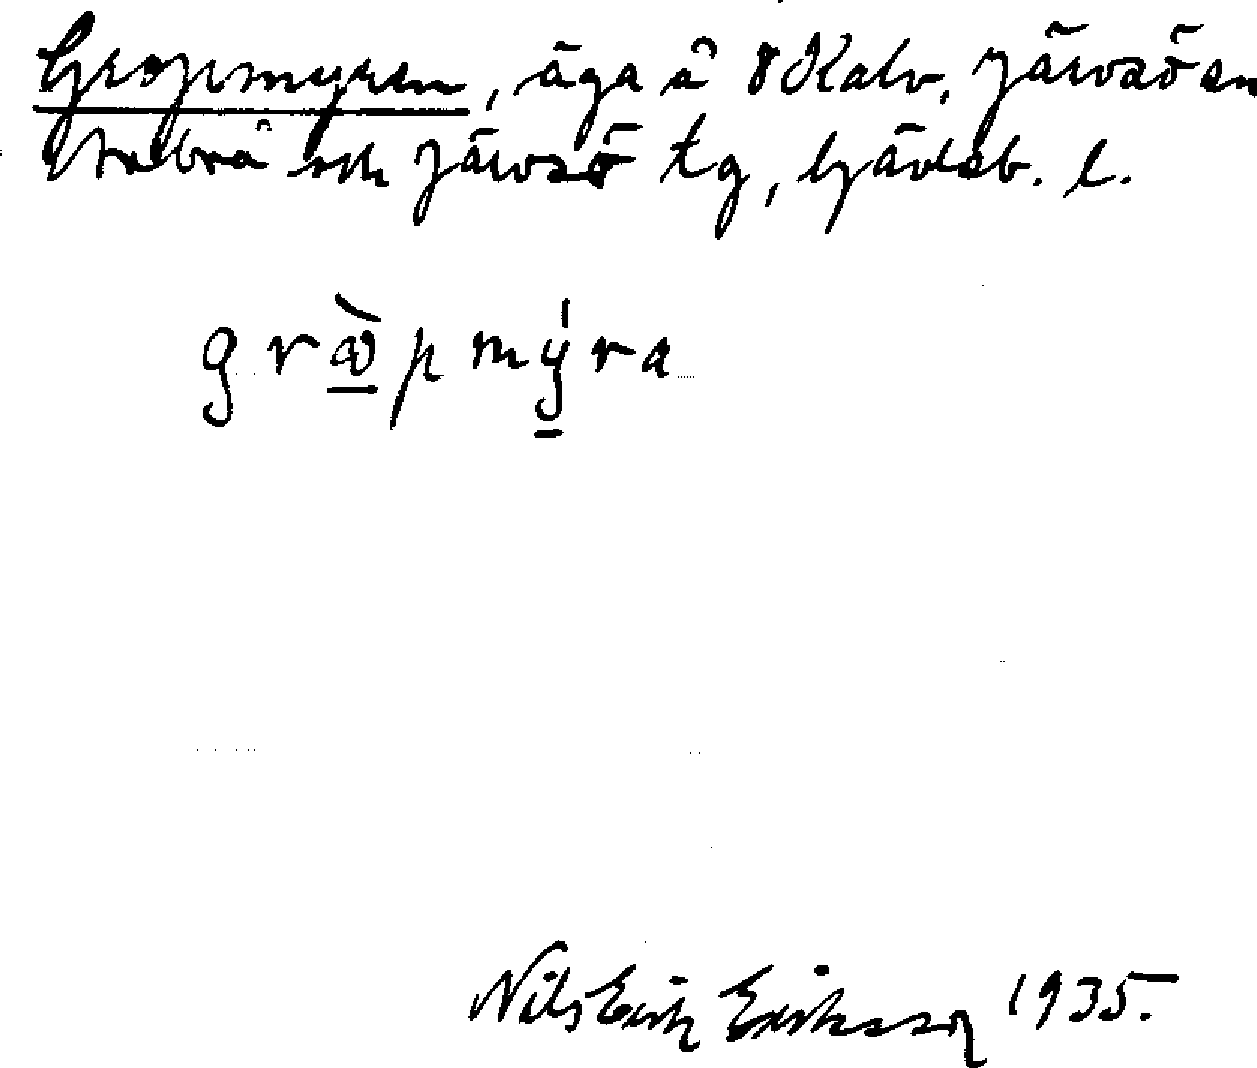 Gropmyren, äga å 8 Kalv, Järvsö sn
Stabrå och Järvsö tg, Gävleb. l.
grὼ̲pmý̲ra
Nils Erik Eriksson 1935.